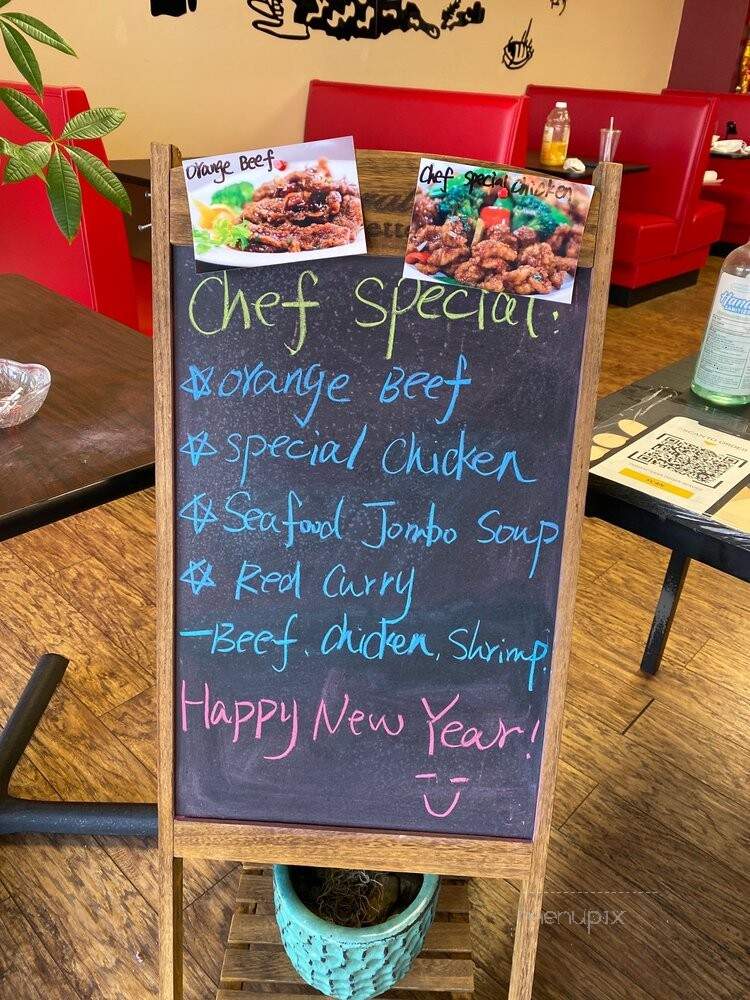 Orange Beef
Chef special chicken
Chef Special:
☆ orange Beef
☆ special chicken
☆ Seafood Jombo Soup
☆ Red Curry
- Beef. chicken. Shrimp.
Happy New Year!
SCAN TO ORDER
menupix